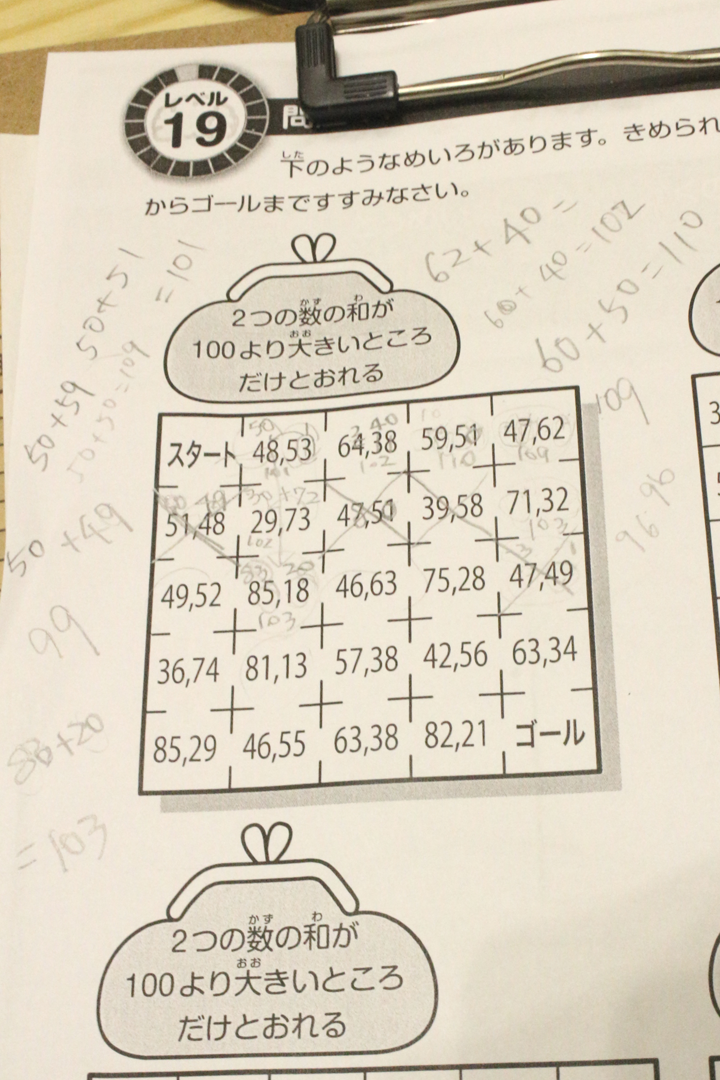 レベル
19
問
下のようなめいろがあります。きめられ
した
からゴールまですすみなさい。
62+40=
60+40=102
60+50=110
50+51
=101
50+59
50+50=109
50+49
99
=103
109
96.96
2つの数の和が
かず わ
100より大きいところ
おお
だけとおれる
スタート 48,53 64,38 59,51 47,62
51,48 29,73 47,51 39,58 71,32
49,52 85,18 46,63 75,28 47,49
36,74 81,13 57,38 42,56 63,34
85,29 46,55 63,38 82,21 ゴール
2つの数の和が
かず わ
100より大きいところ
おお
だけとおれる